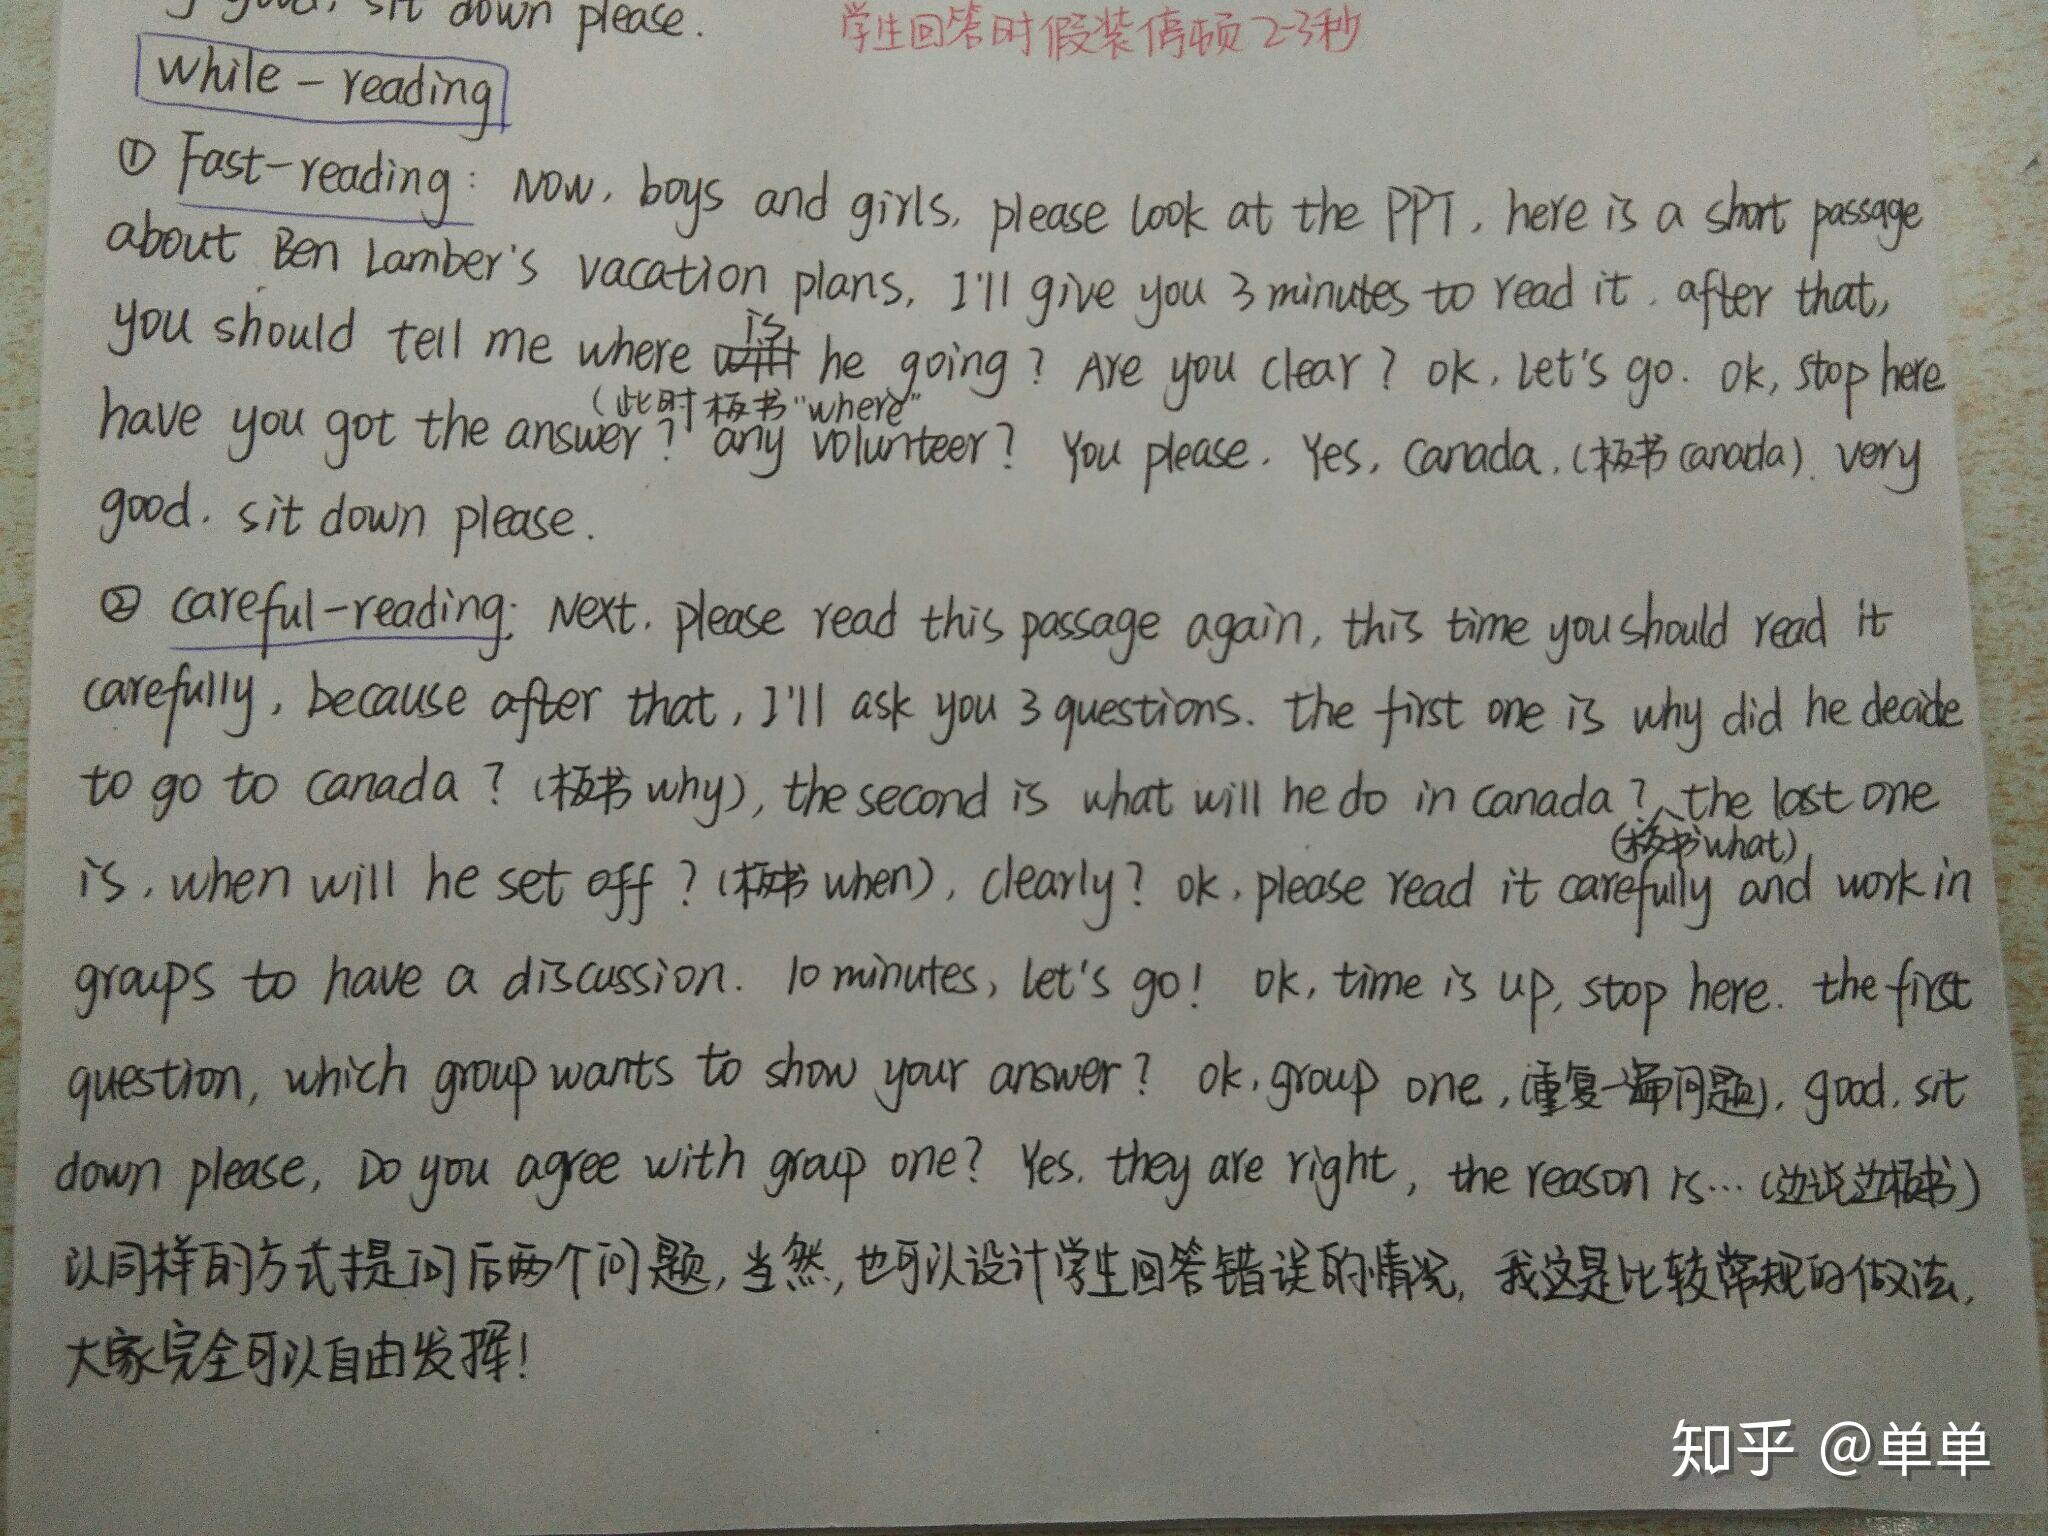 good, sit down please. 学生回答时假装停顿2-3秒
while-reading
① Fast-reading: Now, boys and girls, please look at the PPT, here is a short passage
about Ben Lamber's vacation plans, I'll give you 3 minutes to read it, after that,
you should tell me where is he going? Are you clear? ok, Let's go. ok, stop here
(此时板书"where"
have you got the answer? any volunteer? You please. Yes, Canada, (板书canada). very
good. sit down please.
② careful-reading: Next, please read this passage again, this time you should read it
carefully, because after that, I'll ask you 3 questions. the first one is why did he decide
to go to canada? (板书why), the second is what will he do in canada? the last one
(板书what)
is, when will he set off? (板书 when), clearly? ok, please read it carefully and work in
groups to have a discussion. 10 minutes, let's go! ok, time is up, stop here. the first
question, which group wants to show your answer? ok, group one, (重复一遍问题), good, sit
down please, Do you agree with group one? Yes, they are right, the reason is... (边说边板书)
以同样的方式提问后两个问题,当然,也可以设计学生回答错误的情况,我这是比较常规的做法,
大家完全可以自由发挥!
知乎 @单单